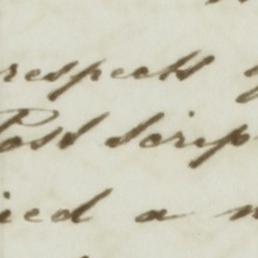 respects
Post Scrip
ied a